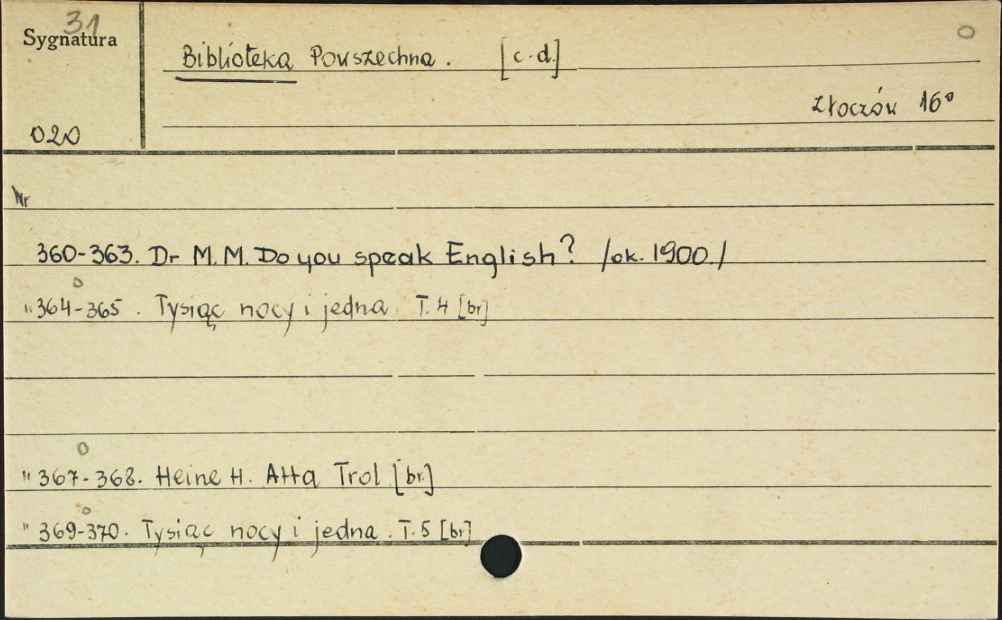 31
Sygnatura
Biblioteka Powszechna. [c.d.]
Złoczów 16°
020
Nr
360-363. Dr M.M. Do you speak English? /ok. 1900./
"364-365. Tysiąc nocy i jedna T.4 [br]
"367-368. Heine H. Atta Trol [br.]
"369-370. Tysiąc nocy i jedna. T.5 [br]